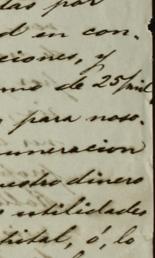 das por
d en con-
ciones, y
mo de 25 mil
para noso-
uneracion
uestro dinero
utilidades
pital, ó, lo